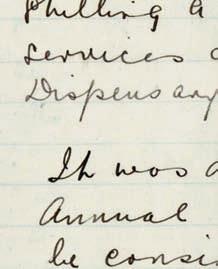 services
Dispensary
It was
Annual
be consi